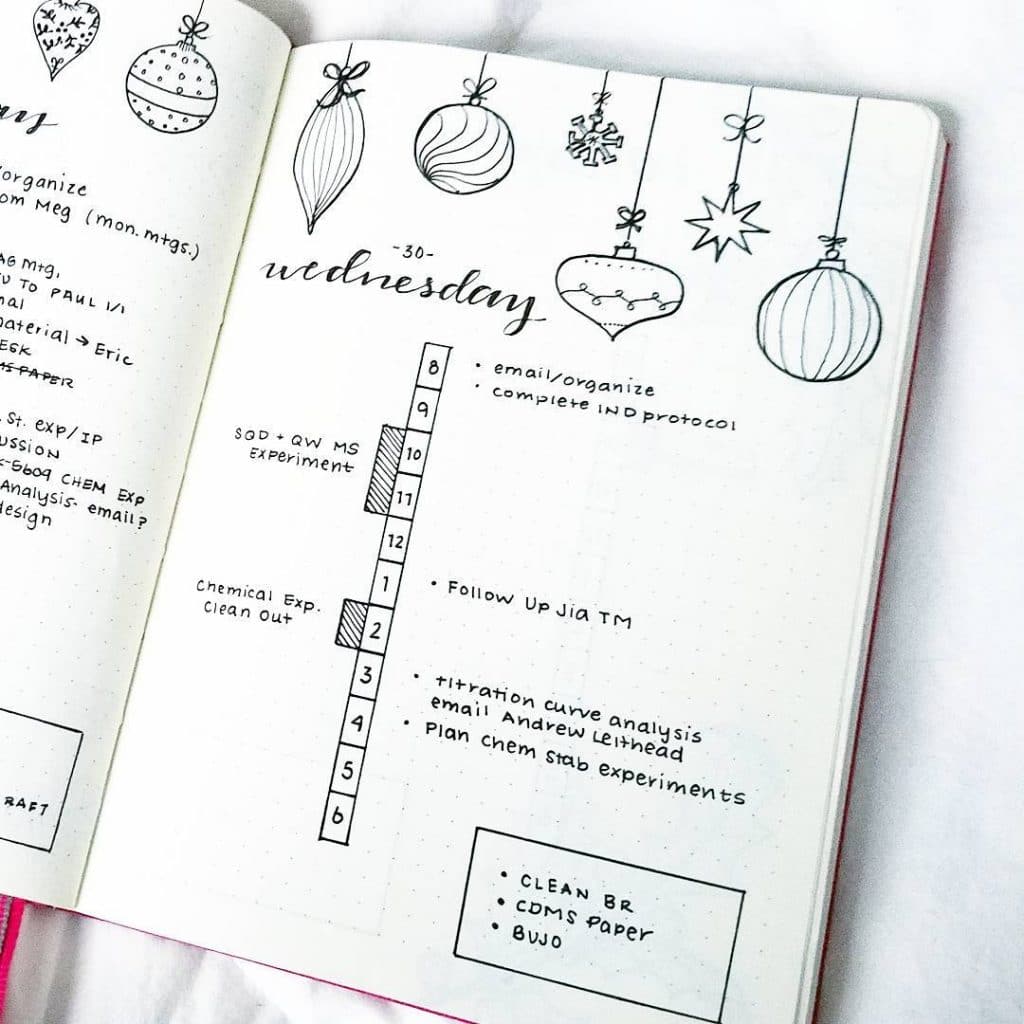 /organize
om Meg (mon. mtgs.)
Mtg,
TO PAUL 1/1
aterial → Eric
ESK
MS PAPER
St. exp/IP
ussion
-5609 CHEM EXP
Analysis. email?
design
RAFT
-30-
wednesday
8
• email/organize
9
• complete IND protocol
SQD + QW MS
Experiment
10
11
12
1
• Follow Up Jia TM
Chemical Exp.
Clean Out
2
3
• titration curve analysis
email Andrew Leithead
4
• Plan Chem Stab experiments
5
6
• CLEAN BR
• CDMS Paper
• BUJO